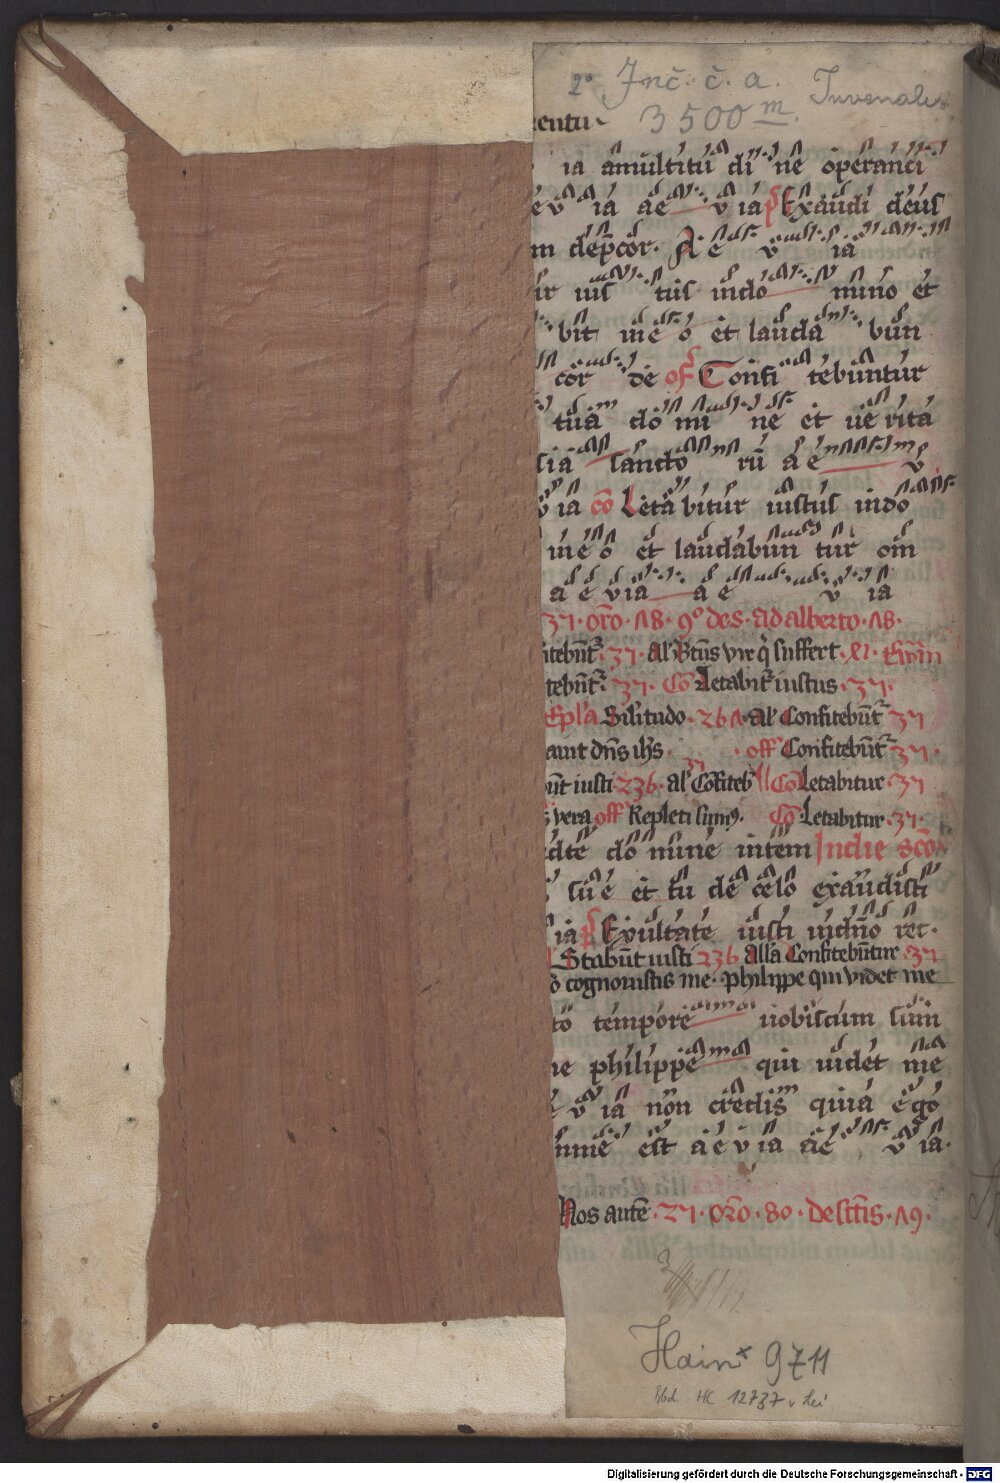 2° Inc. c. a. Juvenalis
3500 m.
entur
ia a multitudine operanci
ev ia ae v ia p Exaudi deus
m deprecor. A e v ia
ir ius tus in do mino et
bit in eo et lauda bun
cor de of Confi tebuntur
tua do mi ne et verita
sia sancto rū a e v
v ia cō Letabitur iustus in do
in eo et laudabun tur om
a e v ia a e v ia
37. orō. 18. 9° de s. adalberto. 18.
itebūt. 37. al' Btūs vir q̄ suffert.
tebūt. 37. Cō Letabit iustus. 37.
Epl'a Silitudo. 261. al' Confitebūt 37
aut dn̄s ih̄s. off Confitebūt 37.
ūt iusti 236. al' Cōfiteb 37 Cō Letabitur. 37
vera off Repleti sum9. Cō Letabitur. 37.
edte do mine in tem In die sco
su e et tu de celo exaudisti
ia p Exultate iusti in dn̄o rec.
Stabūt iusti 236 alla Confitebūtur. 37
o cognouistis me. philippe qui videt me
to tempore vobiscum sum
ne philippe qui uidet me
e v ia non credis quia ego
in me est a e v ia a e v ia.
Nos autē. 27. orō. 80. de sctīs. 19.
Hain* 9711
Bbd HC 12737
Digitalisierung gefördert durch die Deutsche Forschungsgemeinschaft - DFG